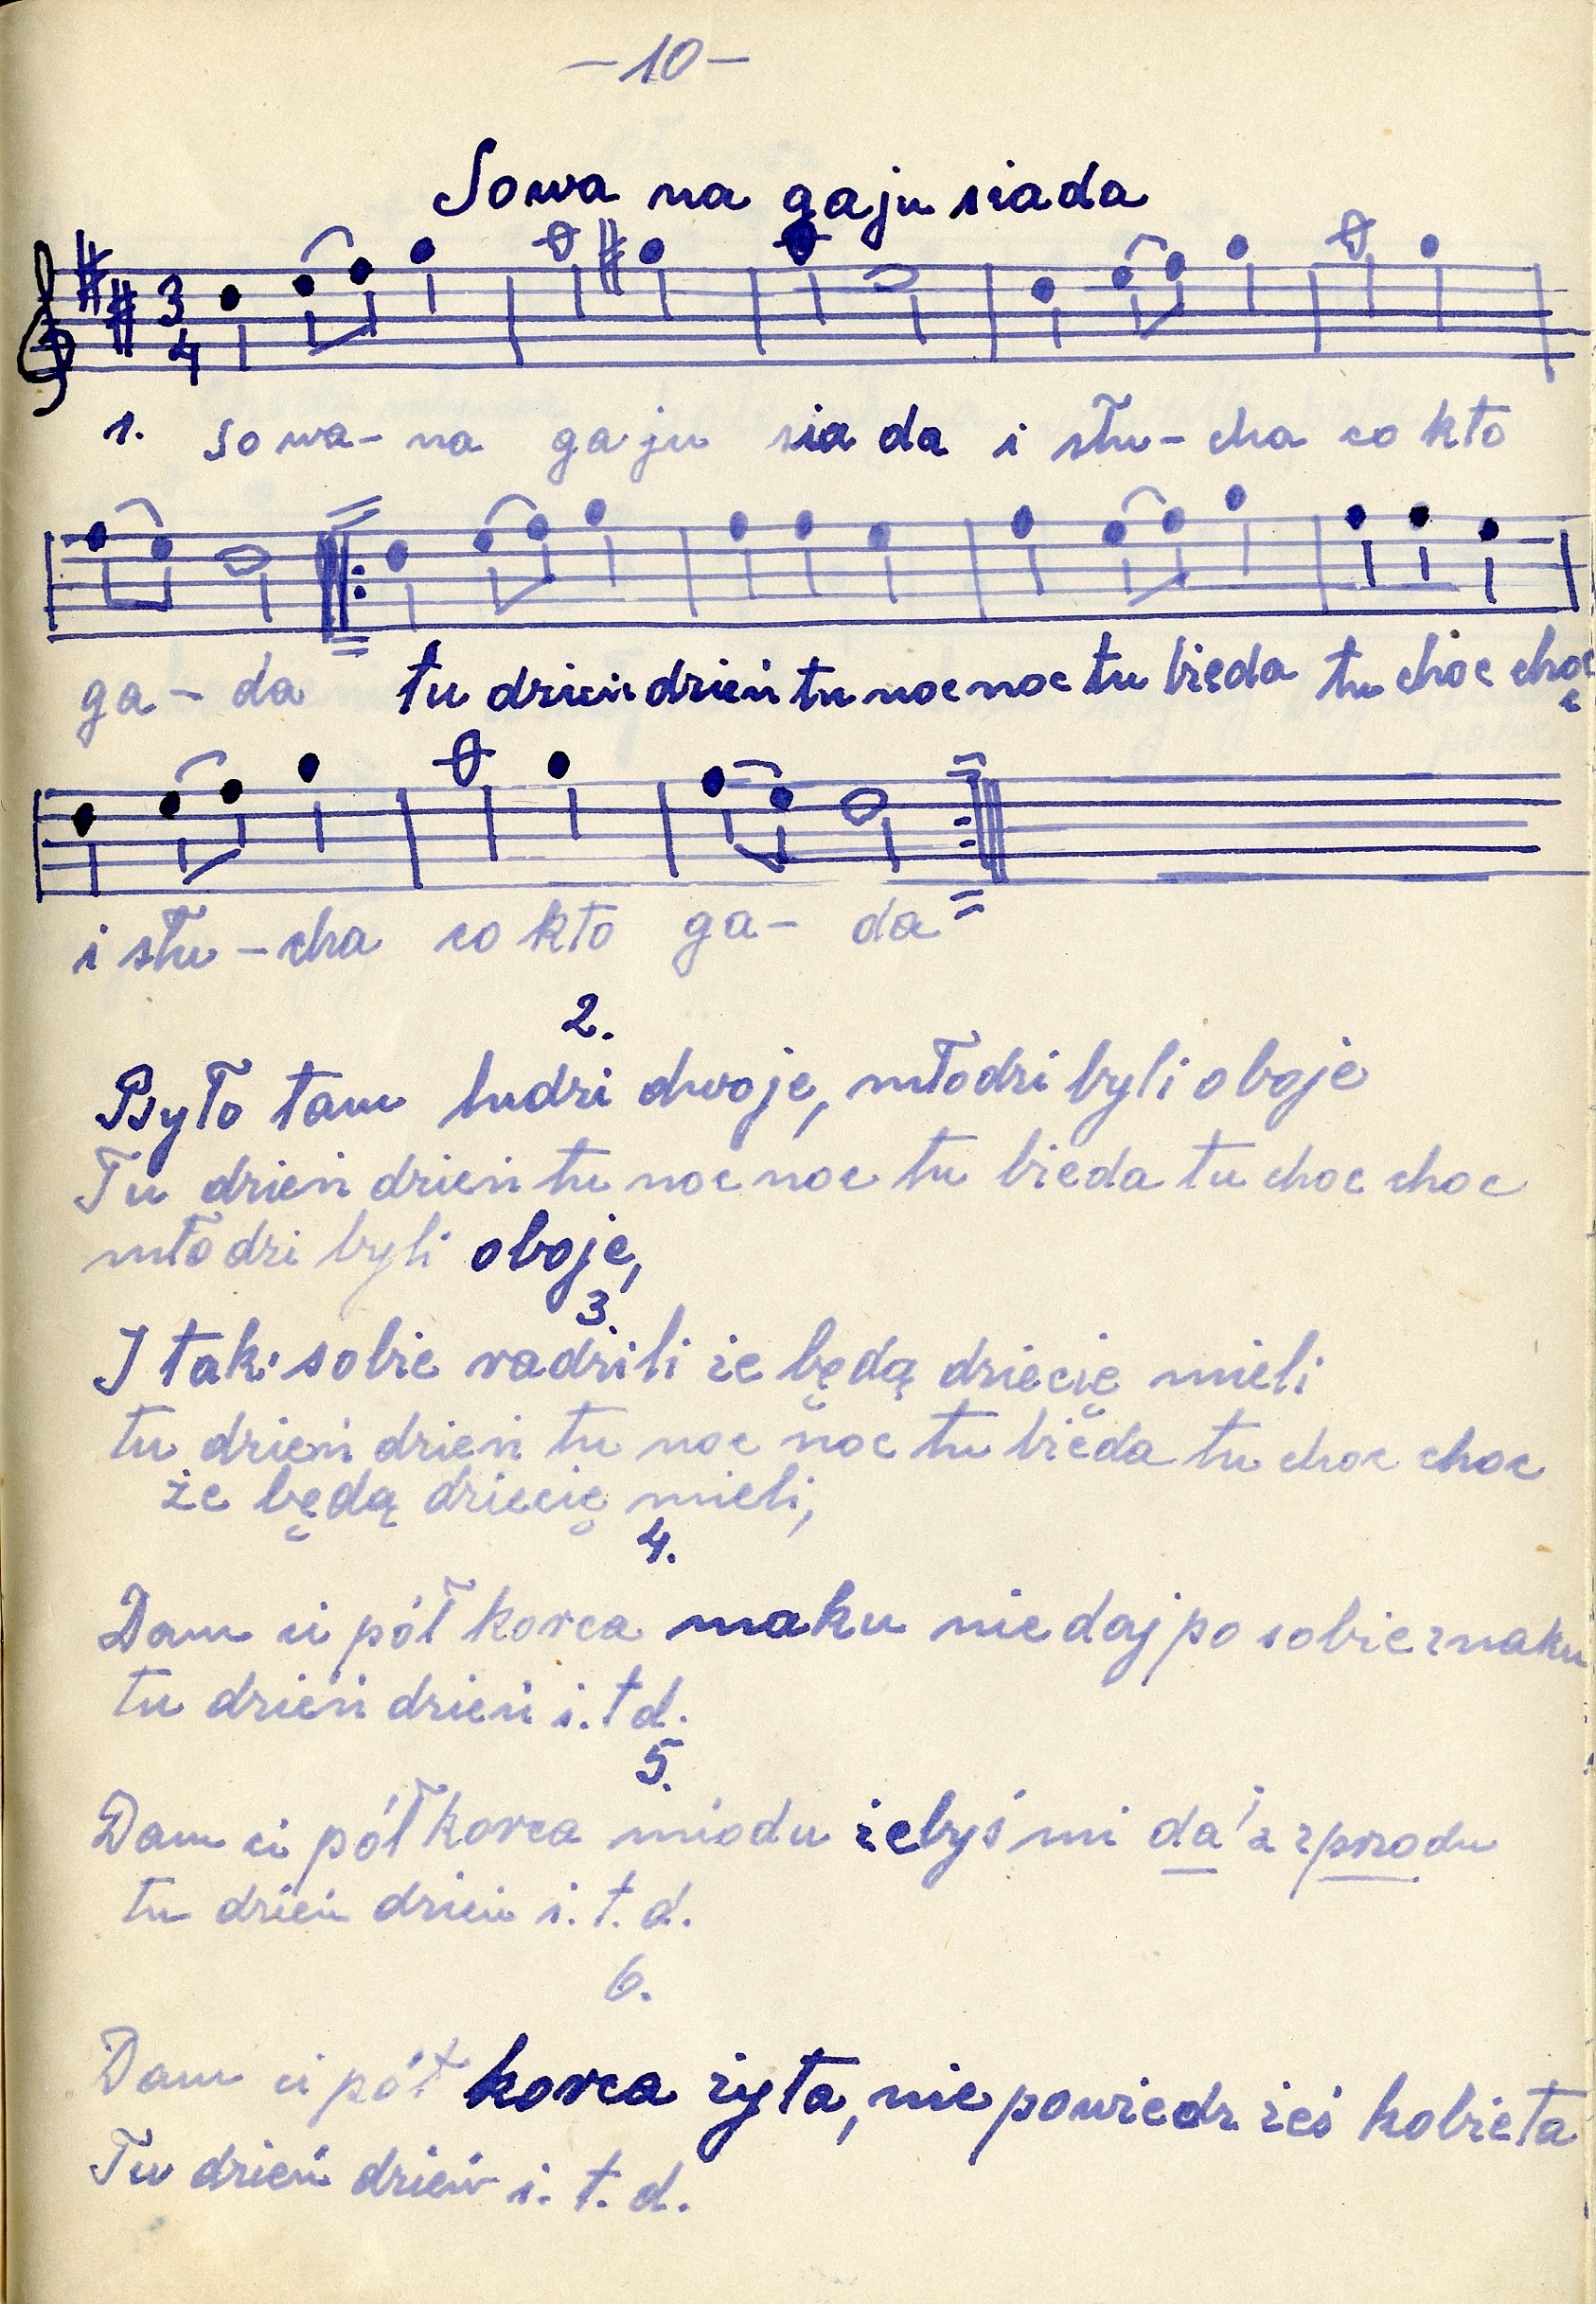 -10-
Sowa na gaju siada
3
4
1. so wa- na gaju siada i słu-cha co kto
ga-da tu dzień dzień tu noc noc tu bieda tu choc choc
i słu-cha co kto ga-da
2.
Było tam ludzi dwoje, młodzi byli oboje
Tu dzień dzień tu noc noc tu bieda tu choc choc
młodzi byli oboje,
3.
I tak sobie radzili że będą dziecię mieli
tu dzień dzień tu noc noc tu bieda tu choc choc
że będą dziecię mieli,
4.
Dam ci pół korca maku nie daj po sobie znaku
tu dzień dzień i.t d.
5.
Dam ci pół korca miodu żebyś mi da' z przodu
tu dzień dzień i.t.d.
6.
Dam ci pół korca żyta, nie powiedz żeś kobieta
Tu dzień dzień i.t.d.